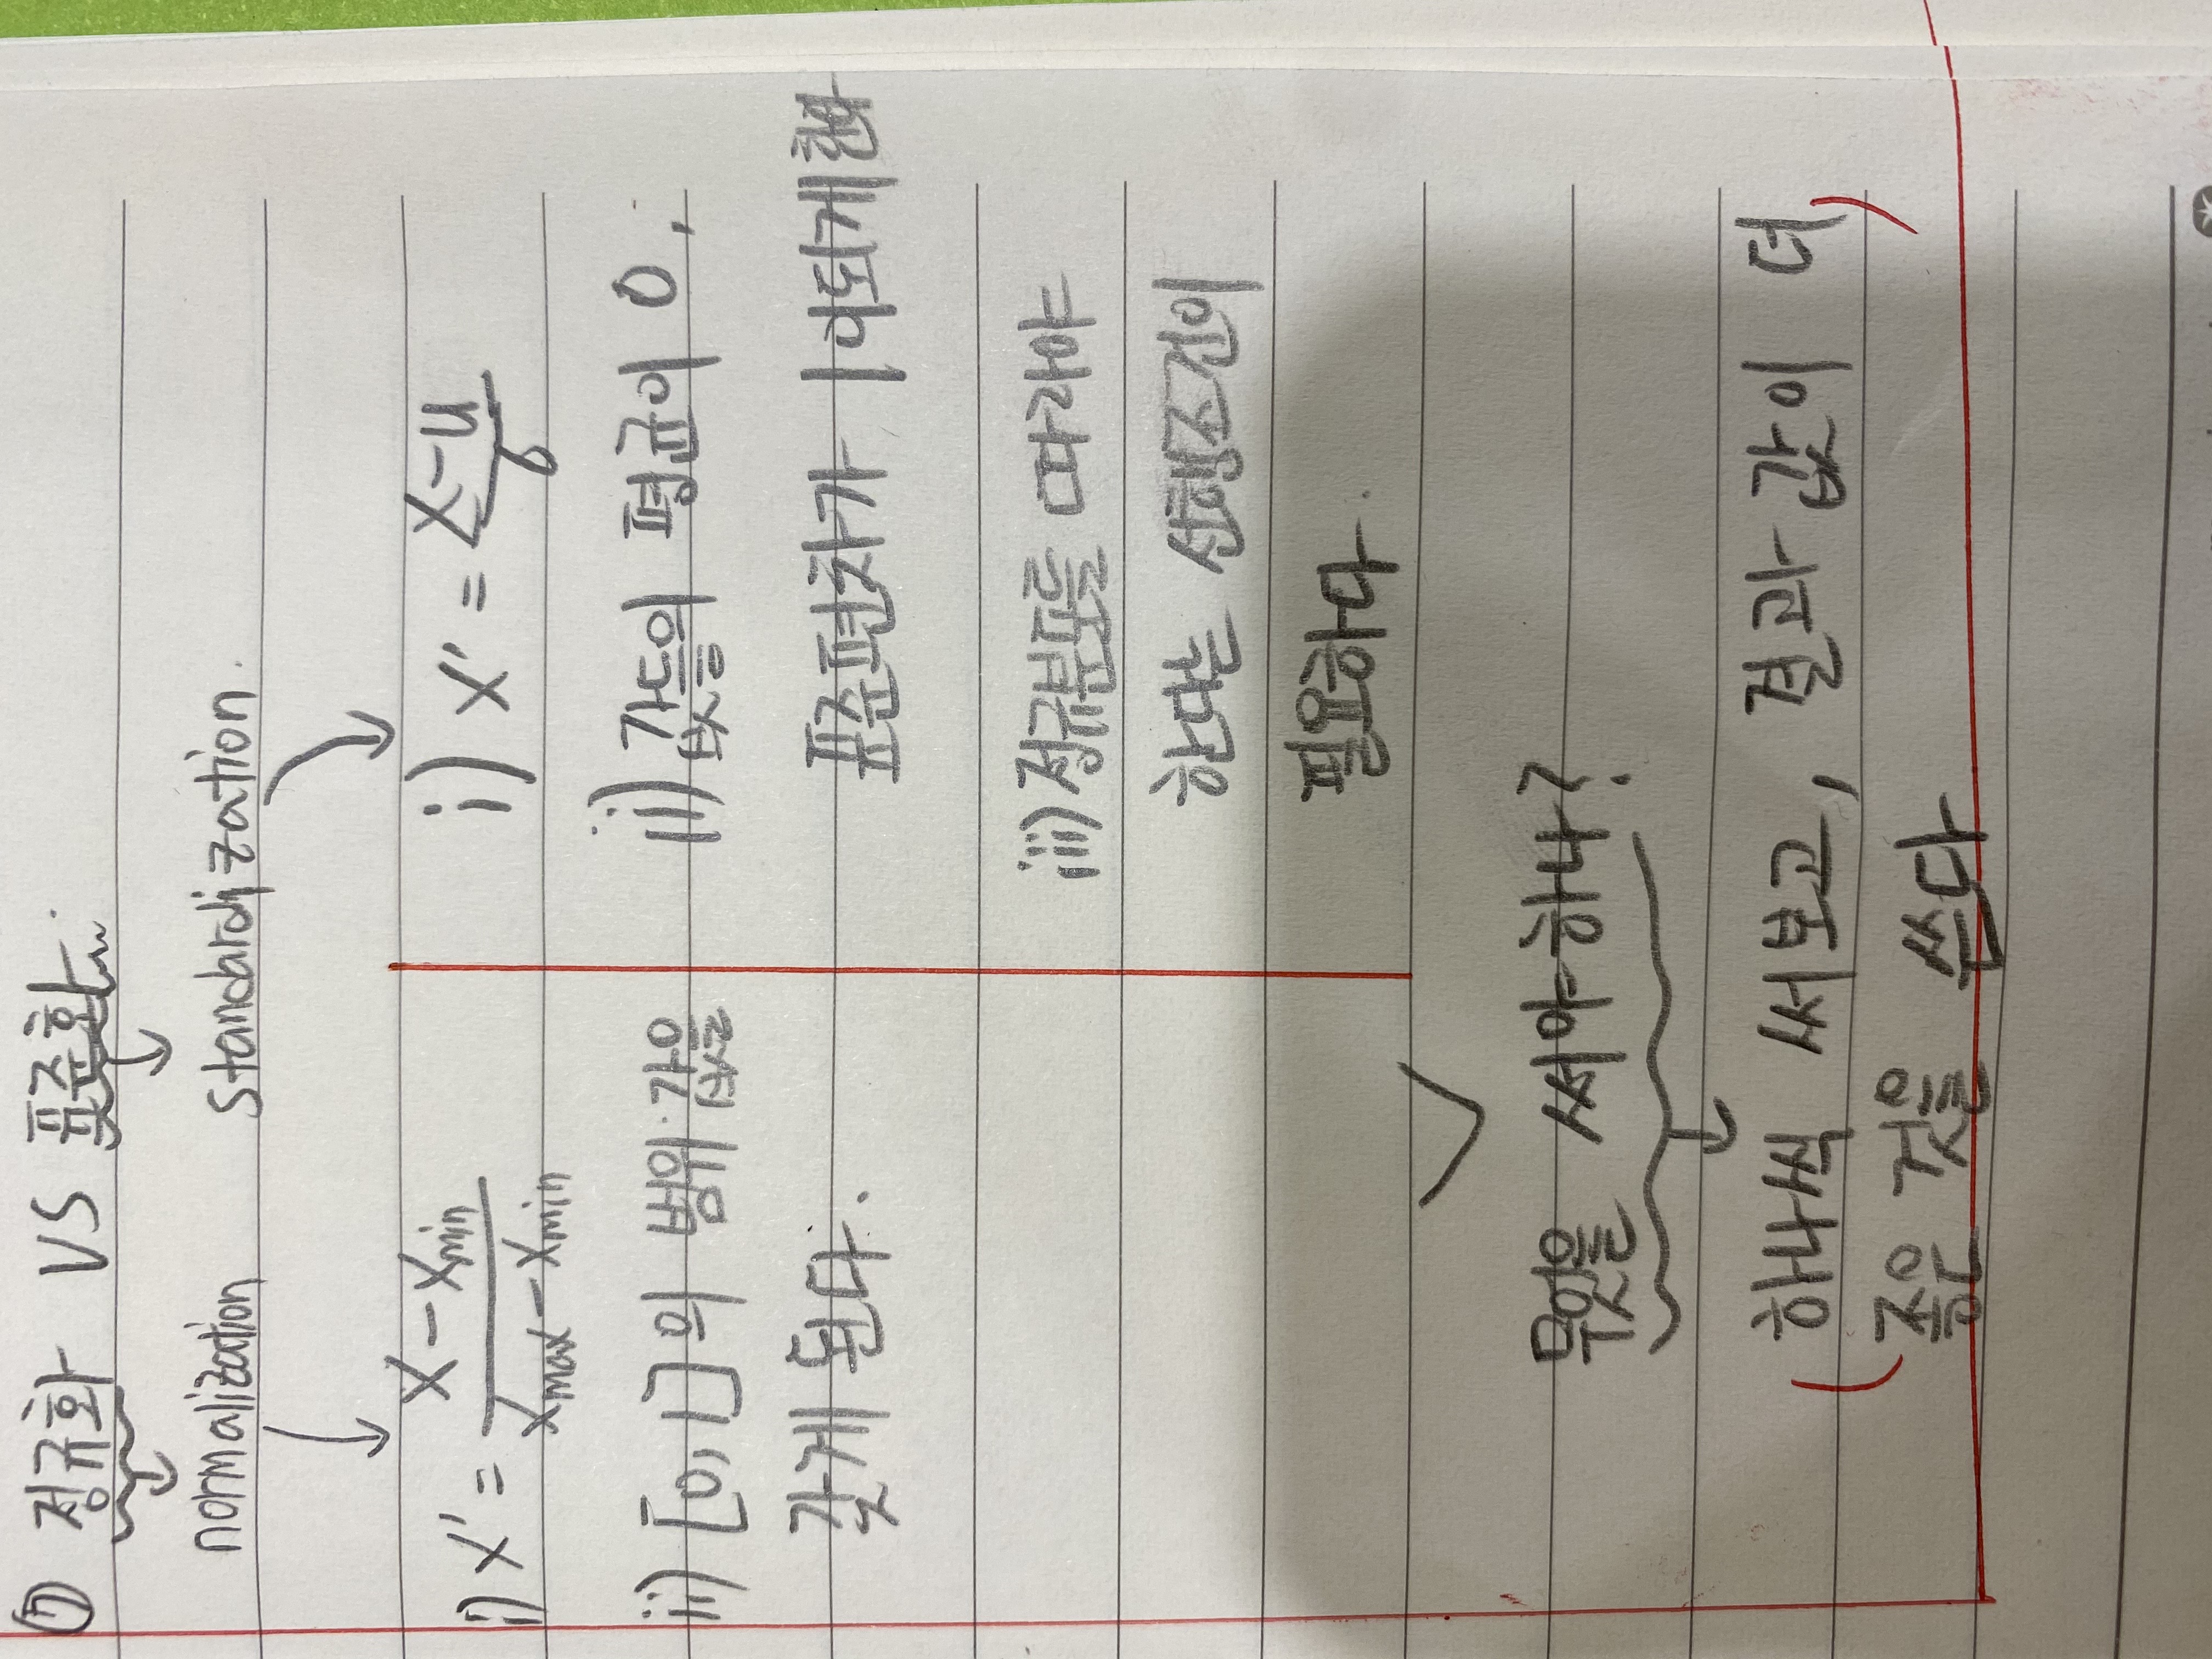 ⑦ 정규화 VS 표준화.
normalization standardization.
i) x' = x - xmin / xmax - xmin
ii) [0,1]의 범위 값을
갖게 된다.
i) x' = x-u / σ
ii) 값들의 평균이 0,
표준편차가 1이되게 변화
iii) 정규분포를 따라야
한다는 선행조건이
필요하다.
무엇을 써야하나?
(하나씩 써보고, 결과 값이 더
좋은 것을 쓴다)